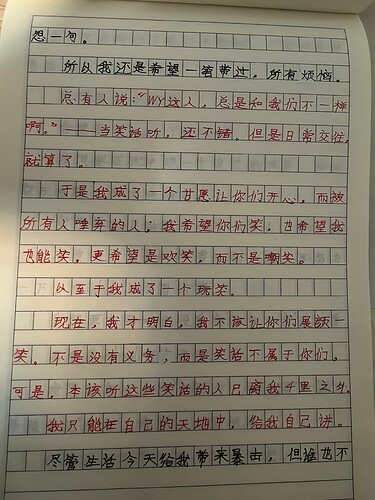 想一句。
所以我还是希望一笔带过，所有烦恼。
总有人说：“WY这人，总是和我们不一样
啊。”——当笑话听，还不错。但是日常交往，
就算了。
于是我成了一个甘愿让你们开心，而被
所有人唾弃的人；我希望你们笑，也希望我
也能笑，更希望是欢笑，而不是嘲笑。
以至于我成了一个玩笑。
现在，我才明白，我不该让你们展颜一
笑。不是没有义务，而是笑话不属于你们。
可是，本该听这些笑话的人已离我千里之外。
我只能在自己的天地中，给我自己讲。
尽管生活今天给我带来暴击，但谁也不